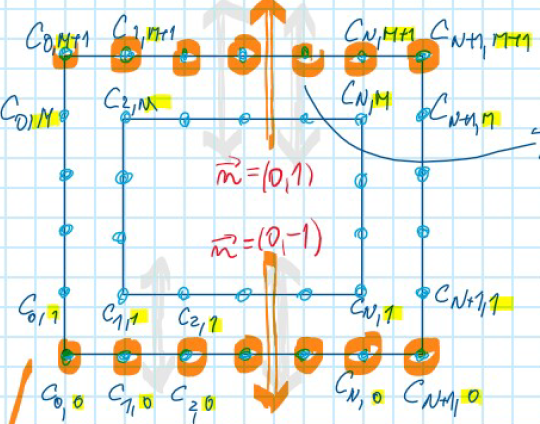 C0,M+1 C1,M+1 CN,M+1 CN+1,M+1
C0,M C2,M CN,M CN+1,M
n⃗=(0,1)
n⃗=(0,-1)
C0,1 C1,1 C2,1 CN,1 CN+1,1
C0,0 C1,0 C2,0 CN,0 CN+1,0